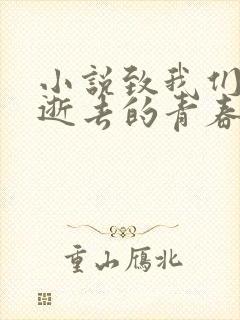 小说致我们
逝去的青春
重山雁北